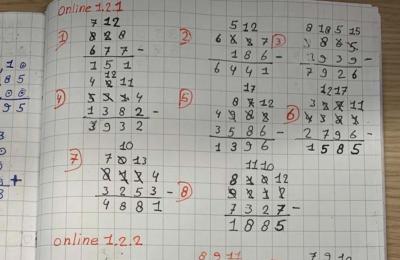 online 1.2.1
1
7 12
8 2 8
6 7 7 -
1 5 1
2
5 12
6 6 2 7
1 8 6 -
6 4 4 1
3
8 18 15 15
3 9 3 9 -
7 9 2 6
4
12
4 2 11
5 3 1 4
1 3 8 2 -
3 9 3 2
5
17
8 7 12
4 9 8 2
3 5 8 6 -
1 3 9 6
6
12 17
3 2 7 11
4 3 8 1
2 7 9 6 -
1 5 8 5
7
10
7 0 13
8 1 3 4
3 2 5 3 -
4 8 8 1
8
11 10
8 1 0 12
9 2 1 2
7 3 2 7 -
1 8 8 5
online 1.2.2
8 9 11
7 9 10